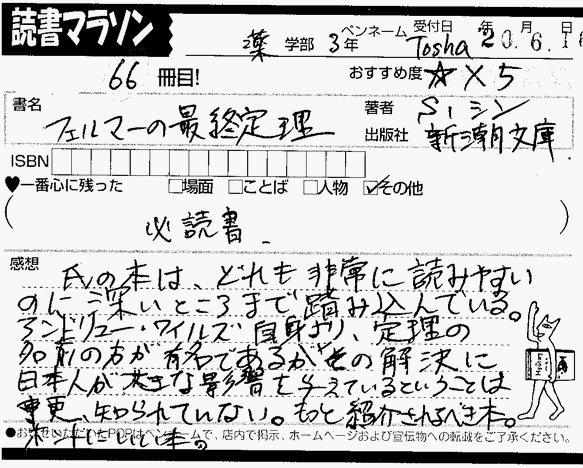 読書マラソン
薬 学部 3年 ペンネーム Tosha 受付日 20年 6月 16日
66 冊目! おすすめ度 ☆×5
書名 フェルマーの最終定理
著者 S・シン
出版社 新潮文庫
ISBN
♥一番心に残った □場面 □ことば □人物 ☑その他
(必読書.)
感想
氏の本は、どれも非常に読みやすい
のに深いところまで踏み込んでいる。
アンドリュー・ワイルズ自身より、定理の
名前の方が有名であるがその解決に
日本人が大きな影響を与えているということは
知られていない。もっと紹介されるべき本。
●お寄せいただいたPOPはペンネームで、店内で掲示、ホームページおよび宣伝物への転載をご了承ください。
本。